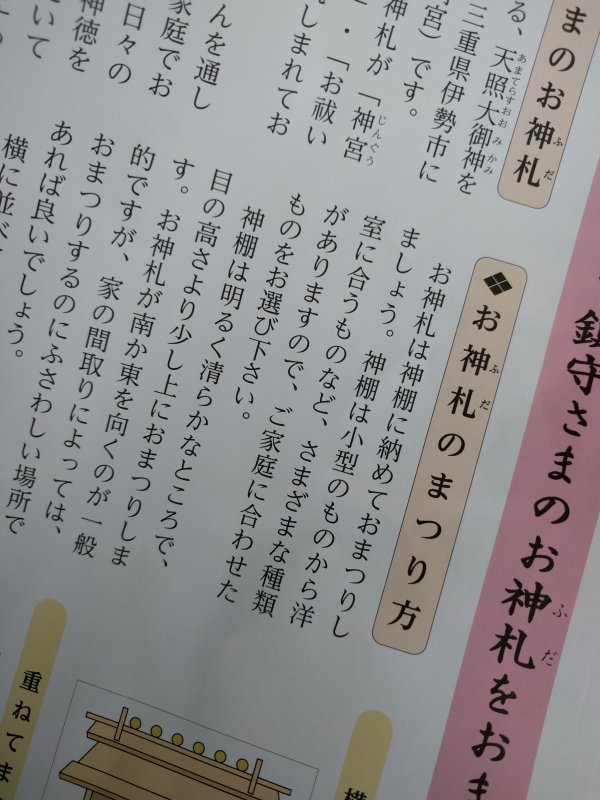 鎮守さまのお神札をおま
まのお神札
る、天照大御神を
三重県伊勢市に
宮）です。
神札が「神宮
・「お祓い
しまれてお
んを通し
家庭でお
日々の
神徳を
いて
❖お神札のまつり方
お神札は神棚に納めておまつりし
ましょう。神棚は小型のものから洋
室に合うものなど、さまざまな種類
がありますので、ご家庭に合わせた
ものをお選び下さい。
神棚は明るく清らかなところで、
目の高さより少し上におまつりしま
す。お神札が南か東を向くのが一般
的ですが、家の間取りによっては、
おまつりするのにふさわしい場所で
あれば良いでしょう。
横に並べ
重ねてま
横